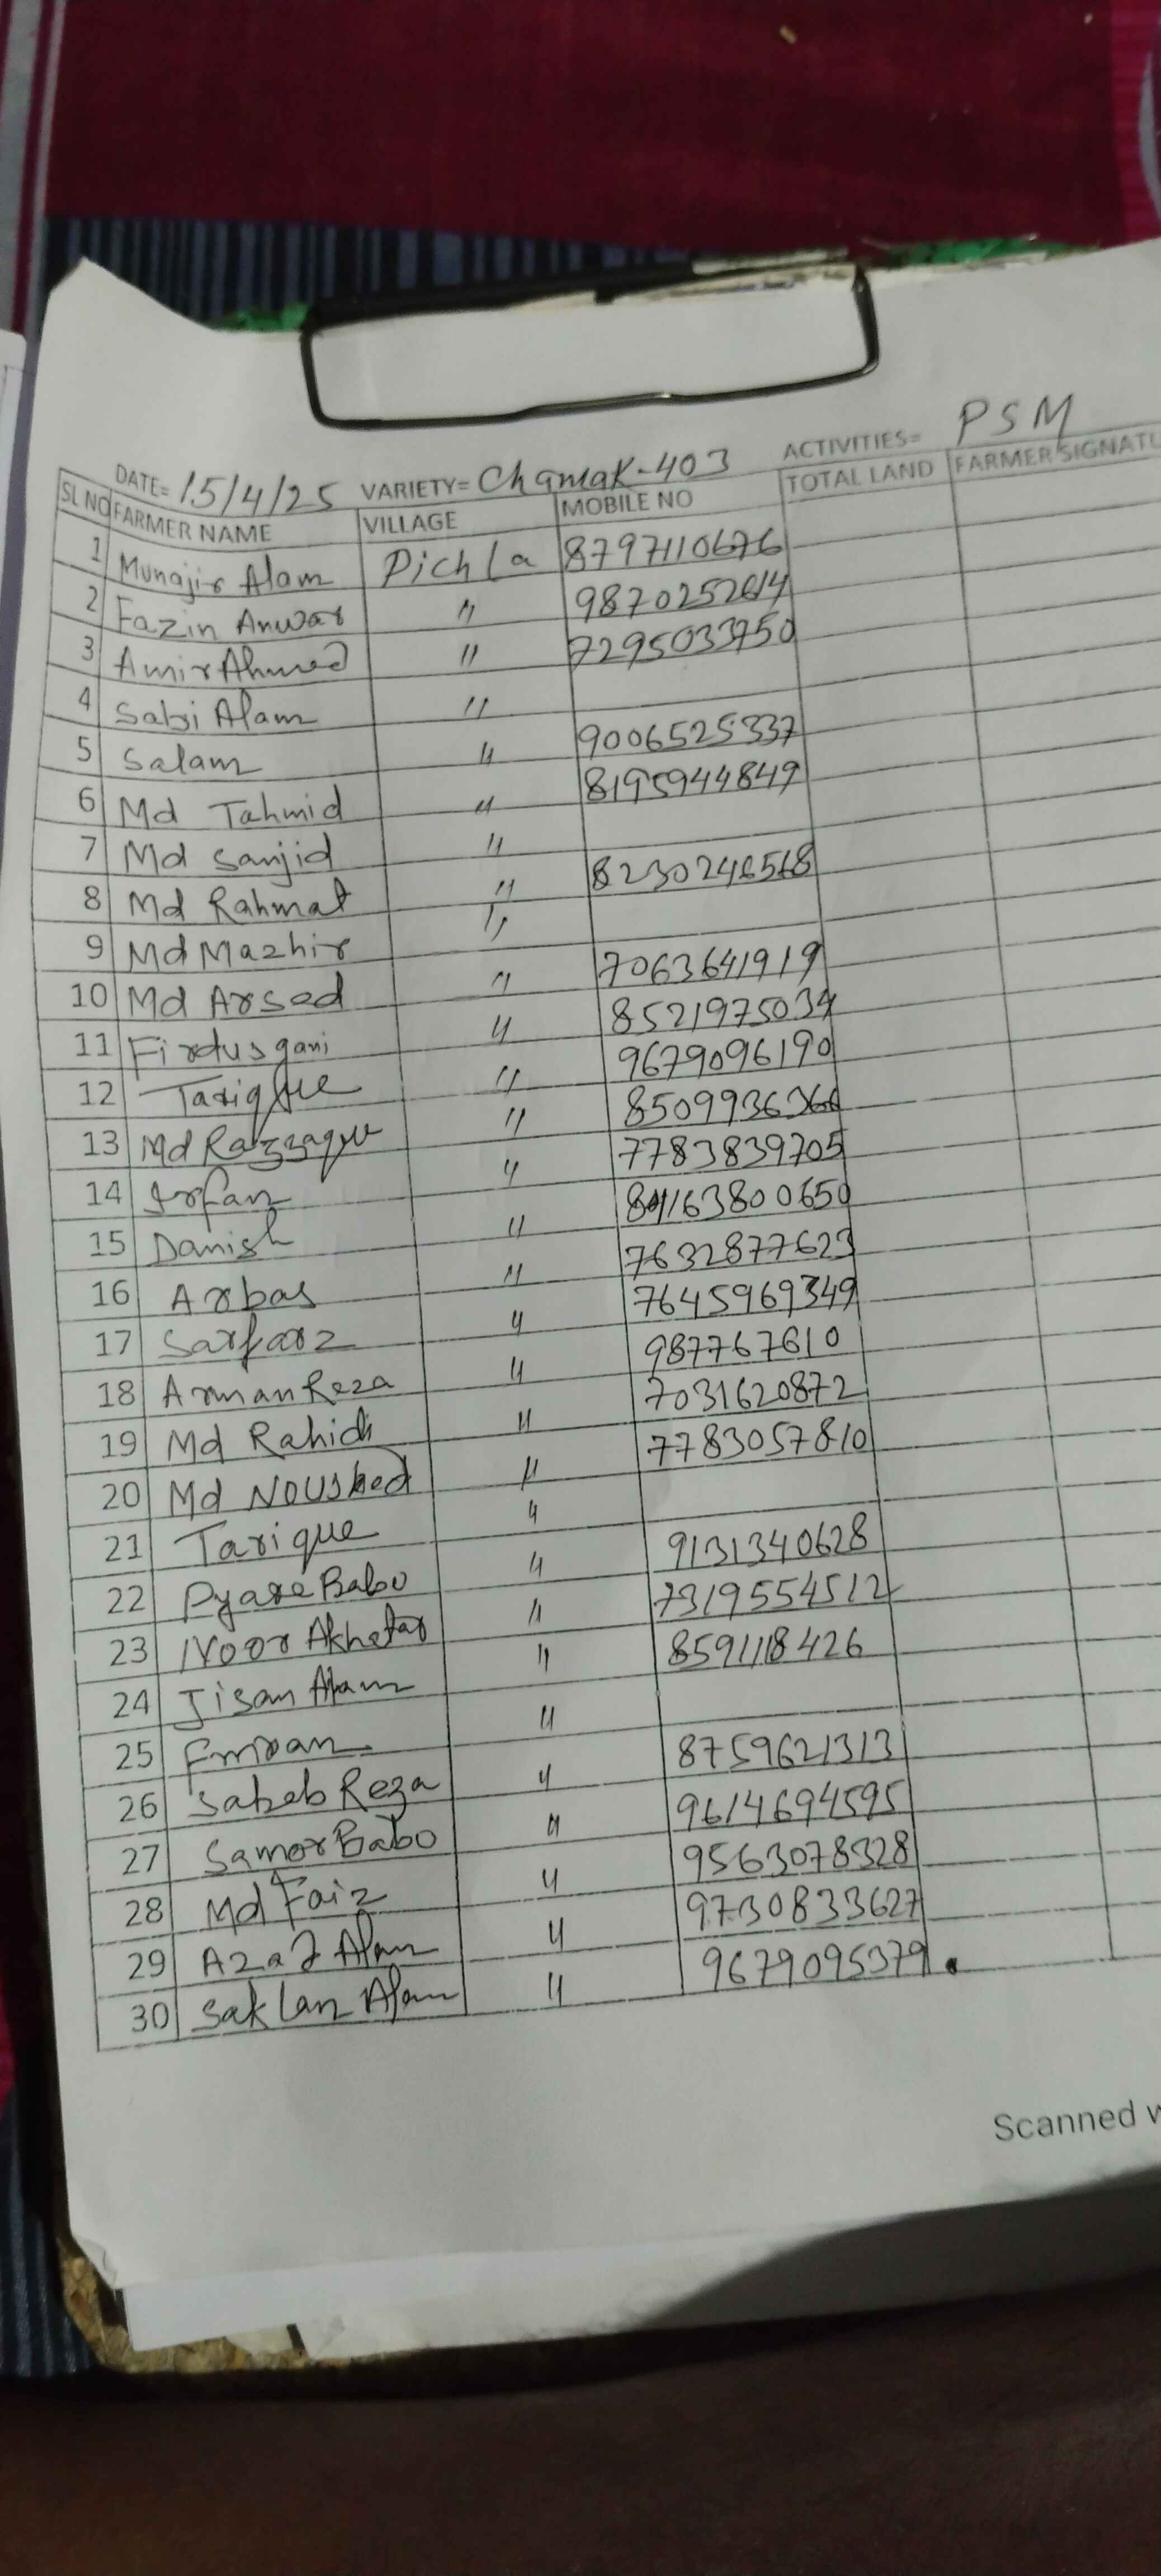 DATE= 15/4/25 VARIETY= Chamak-403 ACTIVITIES= PSM
SL NO FARMER NAME VILLAGE MOBILE NO TOTAL LAND FARMER SIGNATU
1 Munajir Alam Pichla 8797110676
2 Fazin Anwar " 9870252614
3 Amir Ahmed " 7295033750
4 Sabi Alam "
5 Salam " 9006525337
6 Md Tahmid " 8195944849
7 Md Sanjid "
8 Md Rahmat " 8230246568
9 Md Mazhir "
10 Md Arsad " 7063641919
11 Firdus gani " 8521975034
12 Tarique " 9679096190
13 Md Razzaque "
14 Irfan " 7783839705
15 Danish "
16 Arbas " 7632877623
17 Sarfarz " 7645969349
18 Arman Reza " 987767610
19 Md Rahid " 7031620872
20 Md Noushed " 7783057810
21 Tarique "
22 Pyare Babo " 9131340628
23 Noor Akhetar " 7319554512
24 Jisan Alam " 859118426
25 Emran "
26 Sabeb Reza " 8759621313
27 Samor Babo " 9614694595
28 Md Faiz " 9563078328
29 Azad Alam " 9730833627
30 Saklan Alam " 9679095379.
Scanned w